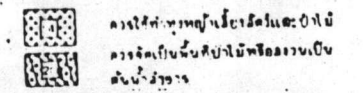 ควรใช้ทำทุ่งหญ้าเลี้ยงสัตว์และป่าไม้
ควรจัดเป็นพื้นที่ป่าไม้หรือสงวนเป็น
ต้นน้ำลำธาร